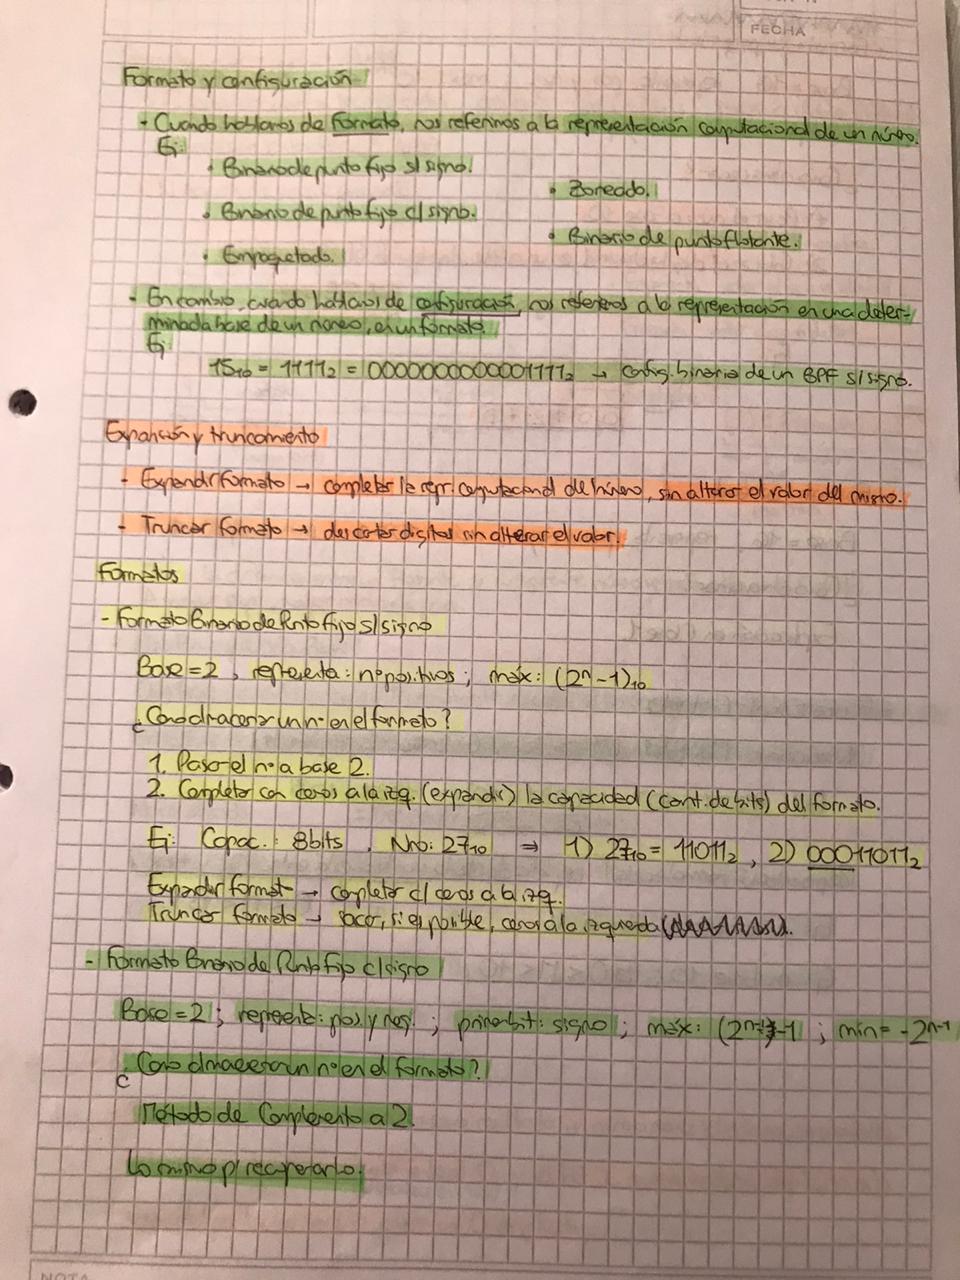 FECHA
Formato y configuración
- Cuando hablamos de formato, nos referimos a la representación computacional de un número.
Ej:
• Binario de punto fijo s/ signo.
• Zoneado.
• Binario de punto fijo c/ signo.
• Binario de punto flotante.
• Empaquetado.
- En cambio, cuando hablamos de configuración, nos referimos a la representación en una deter-
minada base de un número, en un formato.
Ej:
15₁₀ = 1111₂ = 0000000000001111₂ → config. binaria de un BPF s/ signo.
Expansión y truncamiento
- Expandir formato → completar la repr. computacional del número, sin alterar el valor del mismo.
- Truncar formato → descartar dígitos sin alterar el valor.
Formatos
- Formato Binario de Punto Fijo s/ signo
Base = 2, representa: nº positivos; máx: (2ⁿ - 1)₁₀
¿Como almacenar un nº en el formato?
1. Paso el nº a base 2.
2. Completar con ceros a la izq. (expandir) la capacidad (cant. de bits) del formato.
Ej: Capac.: 8 bits, Nro: 27₁₀ ⇒ 1) 27₁₀ = 11011₂, 2) 00011011₂
Expandir format → completar c/ ceros a la izq.
Truncar formato → sacar, si es posible, ceros a la izquierda
- Formato Binario de Punto Fijo c/ signo
Base = 2; representa: pos y neg.; primer bit: signo; máx: (2ⁿ⁻¹)-1; min = -2ⁿ⁻¹
¿Como almacenar un nº en el formato?
Método de Complemento a 2
Lo mismo p/ recuperarlo.
NOTA